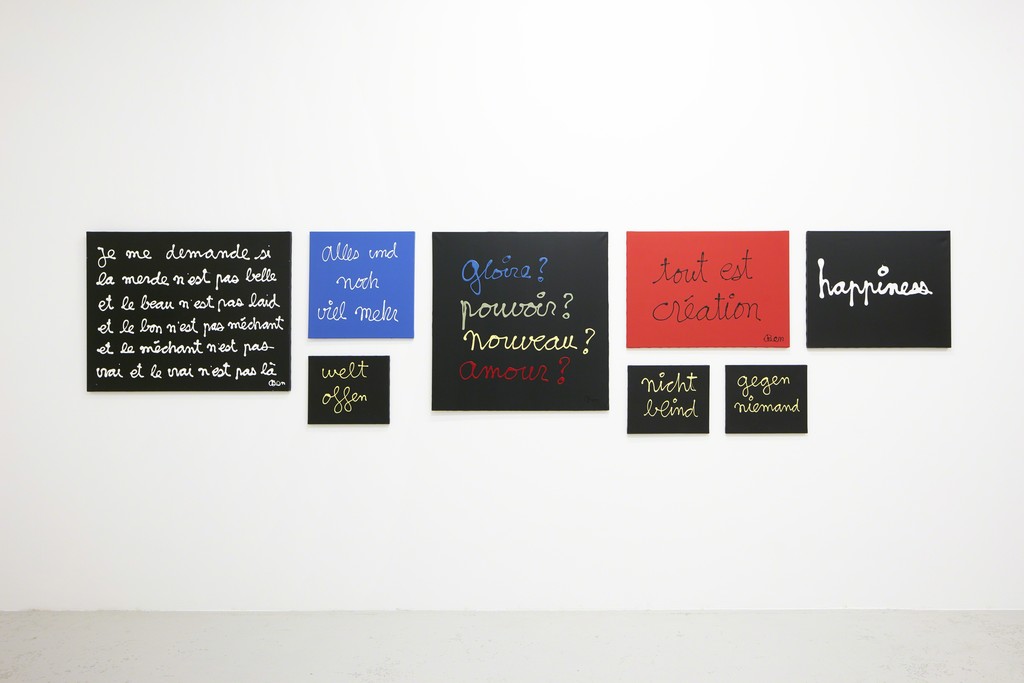 Je me demande si
la merde n'est pas belle
et le beau n'est pas laid
et le bon n'est pas méchant
et le méchant n'est pas
vrai et le vrai n'est pas là
Ben
alles und
noch
viel mehr
welt
offen
gloire?
pouvoir?
nouveau?
amour?
tout est
création
Ben
nicht
blind
gegen
niemand
happiness